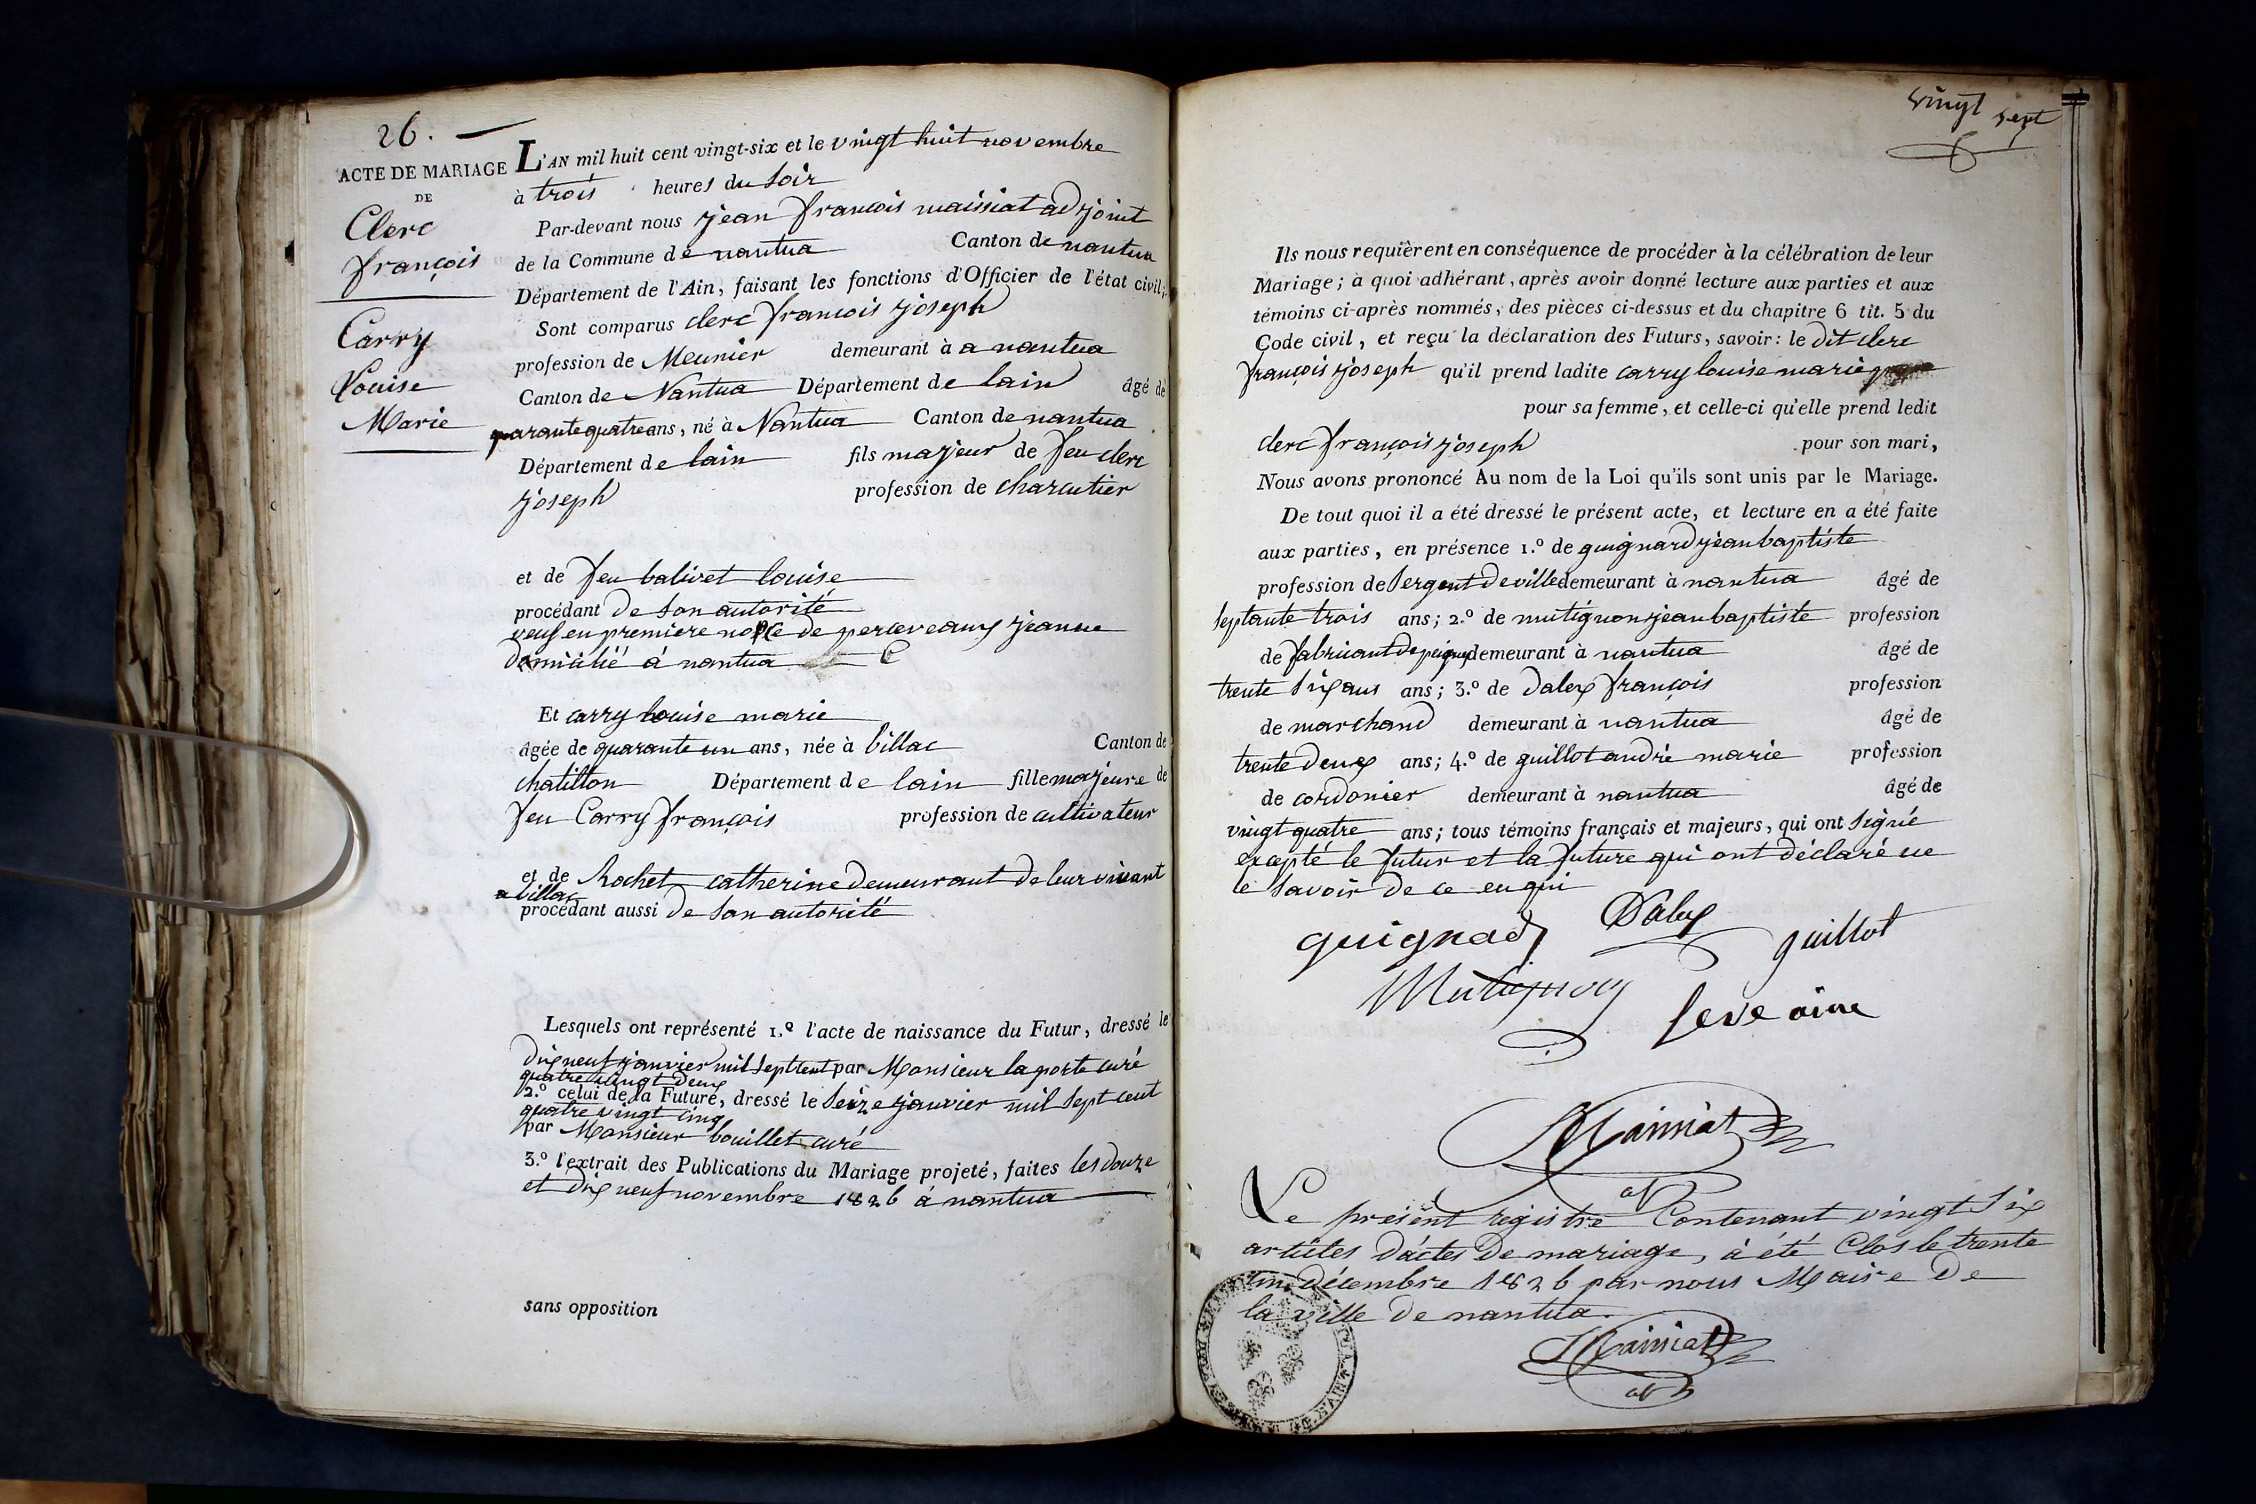 26.
ACTE DE MARIAGE
DE
Clerc
françois
Carry
Louise
Marie
L'AN mil huit cent vingt-six et le vingt huit novembre
à trois heures du soir
Par-devant nous jean françois maissiat adjoint
de la Commune de nantua Canton de nantua
Département de l'Ain, faisant les fonctions d'Officier de l'état civil;
Sont comparus clerc francois joseph
profession de Meunier demeurant à a nantua
Canton de Nantua Département de lain âgé de
quarante quatre ans, né à Nantua Canton de nantua
Département de lain fils majeur de feu clerc
joseph profession de charcutier
et de feu balivet louise
procédant de son autorité
veuf en premiere nopce de perceveaux jeanne
domicilié á nantua
Et carry louise marie
âgée de quarante un ans, née à billac Canton de
chatillon Département de lain fille majeure de
feu Carry françois profession de cultivateur
et de Rochet catherine demeurant de leur vivant
a billac
procédant aussi de son autorité
Lesquels ont représenté 1.º l'acte de naissance du Futur, dressé le
dix neuf janvier mil sept cent par Monsieur laporte curé
quatre vingt deux
2.º celui de la Future, dressé le seize janvier mil sept cent
quatre vingt cinq
par Monsieur bouillet curé
3.º l'extrait des Publications du Mariage projeté, faites les douze
et dix neuf novembre 1826 á nantua
sans opposition
vingt sept
Ils nous requièrent en conséquence de procéder à la célébration de leur
Mariage; à quoi adhérant, après avoir donné lecture aux parties et aux
témoins ci-après nommés, des pièces ci-dessus et du chapitre 6 tit. 5 du
Code civil, et reçu la déclaration des Futurs, savoir: le dit clerc
françois joseph qu'il prend ladite carry louise marie
pour sa femme, et celle-ci qu'elle prend ledit
clerc françois joseph pour son mari,
Nous avons prononcé Au nom de la Loi qu'ils sont unis par le Mariage.
De tout quoi il a été dressé le présent acte, et lecture en a été faite
aux parties, en présence 1.º de guignard jean baptiste
profession de sergent de ville demeurant à nantua âgé de
septante trois ans; 2.º de mutignon jean baptiste profession
de fabricant de peignes demeurant à nantua âgé de
trente six ans ans; 3.º de dalex françois profession
de marchand demeurant à nantua âgé de
trente deux ans; 4.º de guillot andré marie profession
de cordonier demeurant à nantua âgé de
vingt quatre ans; tous témoins français et majeurs, qui ont signé
excepté le futur et la future qui ont déclaré ne
le savoir de ce enqui
guignad Dalex guillot
Mutignon
seve aine
Maissiat
adj
Le présent registre Contenant vingt six
articles dáctes de mariage, à été Clos le trente
un décembre 1826 par nous Maire De
la ville de nantua.
Maissiat
adj